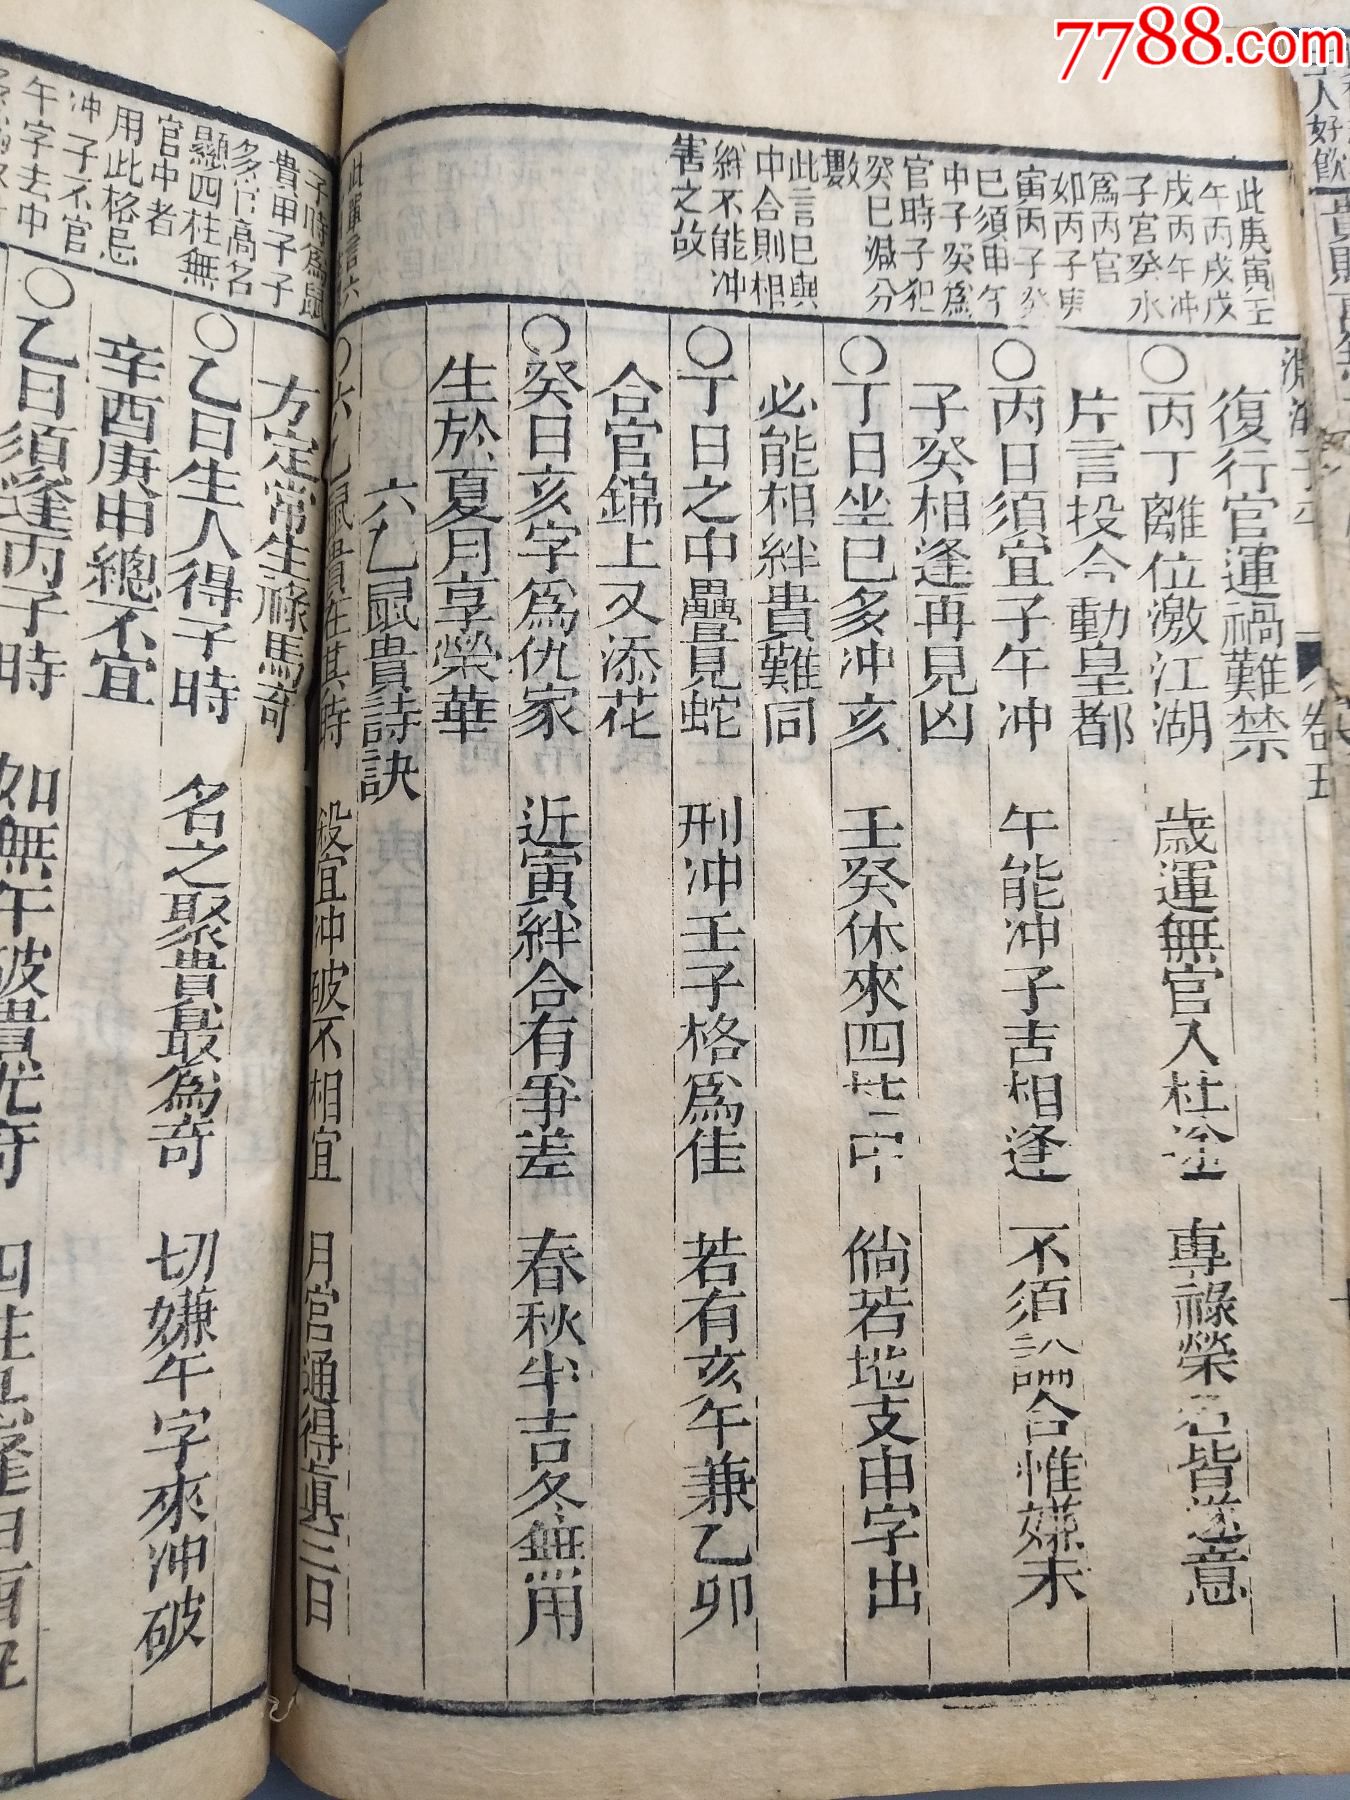 7788.com
人好飲
此庚寅壬
午丙戌戊
戌丙午冲
子宮癸水
爲丙官
如丙子庚
寅丙子癸
巳須申午
中子癸爲
官時子犯
癸巳減分
數
此言巳與
中合則相
絆不能冲
害之故
此單言六
淵海子平
卷五
復行官運禍難禁
○丙丁離位激江湖 歲運無官入杜途 專祿榮名皆遂意
片言投今動皇都
○丙日須宜子午冲 午能冲子吉相逢 不須論合惟嫌未
子癸相逢再見凶
○丁日坐巳多冲亥 壬癸休來四柱中 倘若地支申字出
必能相絆貴難同
○丁日之中疊見蛇 刑冲壬子格爲佳 若有亥午兼乙卯
合官錦上又添花
○癸日亥字爲仇家 近寅絆合有爭差 春秋半吉冬無用
生於夏月享榮華
六乙鼠貴詩訣
○六乙鼠貴在其時 殺宜冲破不相宜 月宮通得眞三日
子時爲鼠
貴甲子子
多官高名
顯四柱無
官中者
用此格忌
冲子不官
午字去中
方定常生祿馬奇
○乙日生人得子時 名之聚貴最爲奇 切嫌午字來冲破
辛酉庚申總不宜
○乙日須逢丙子時 如無午破貴尤奇 四柱